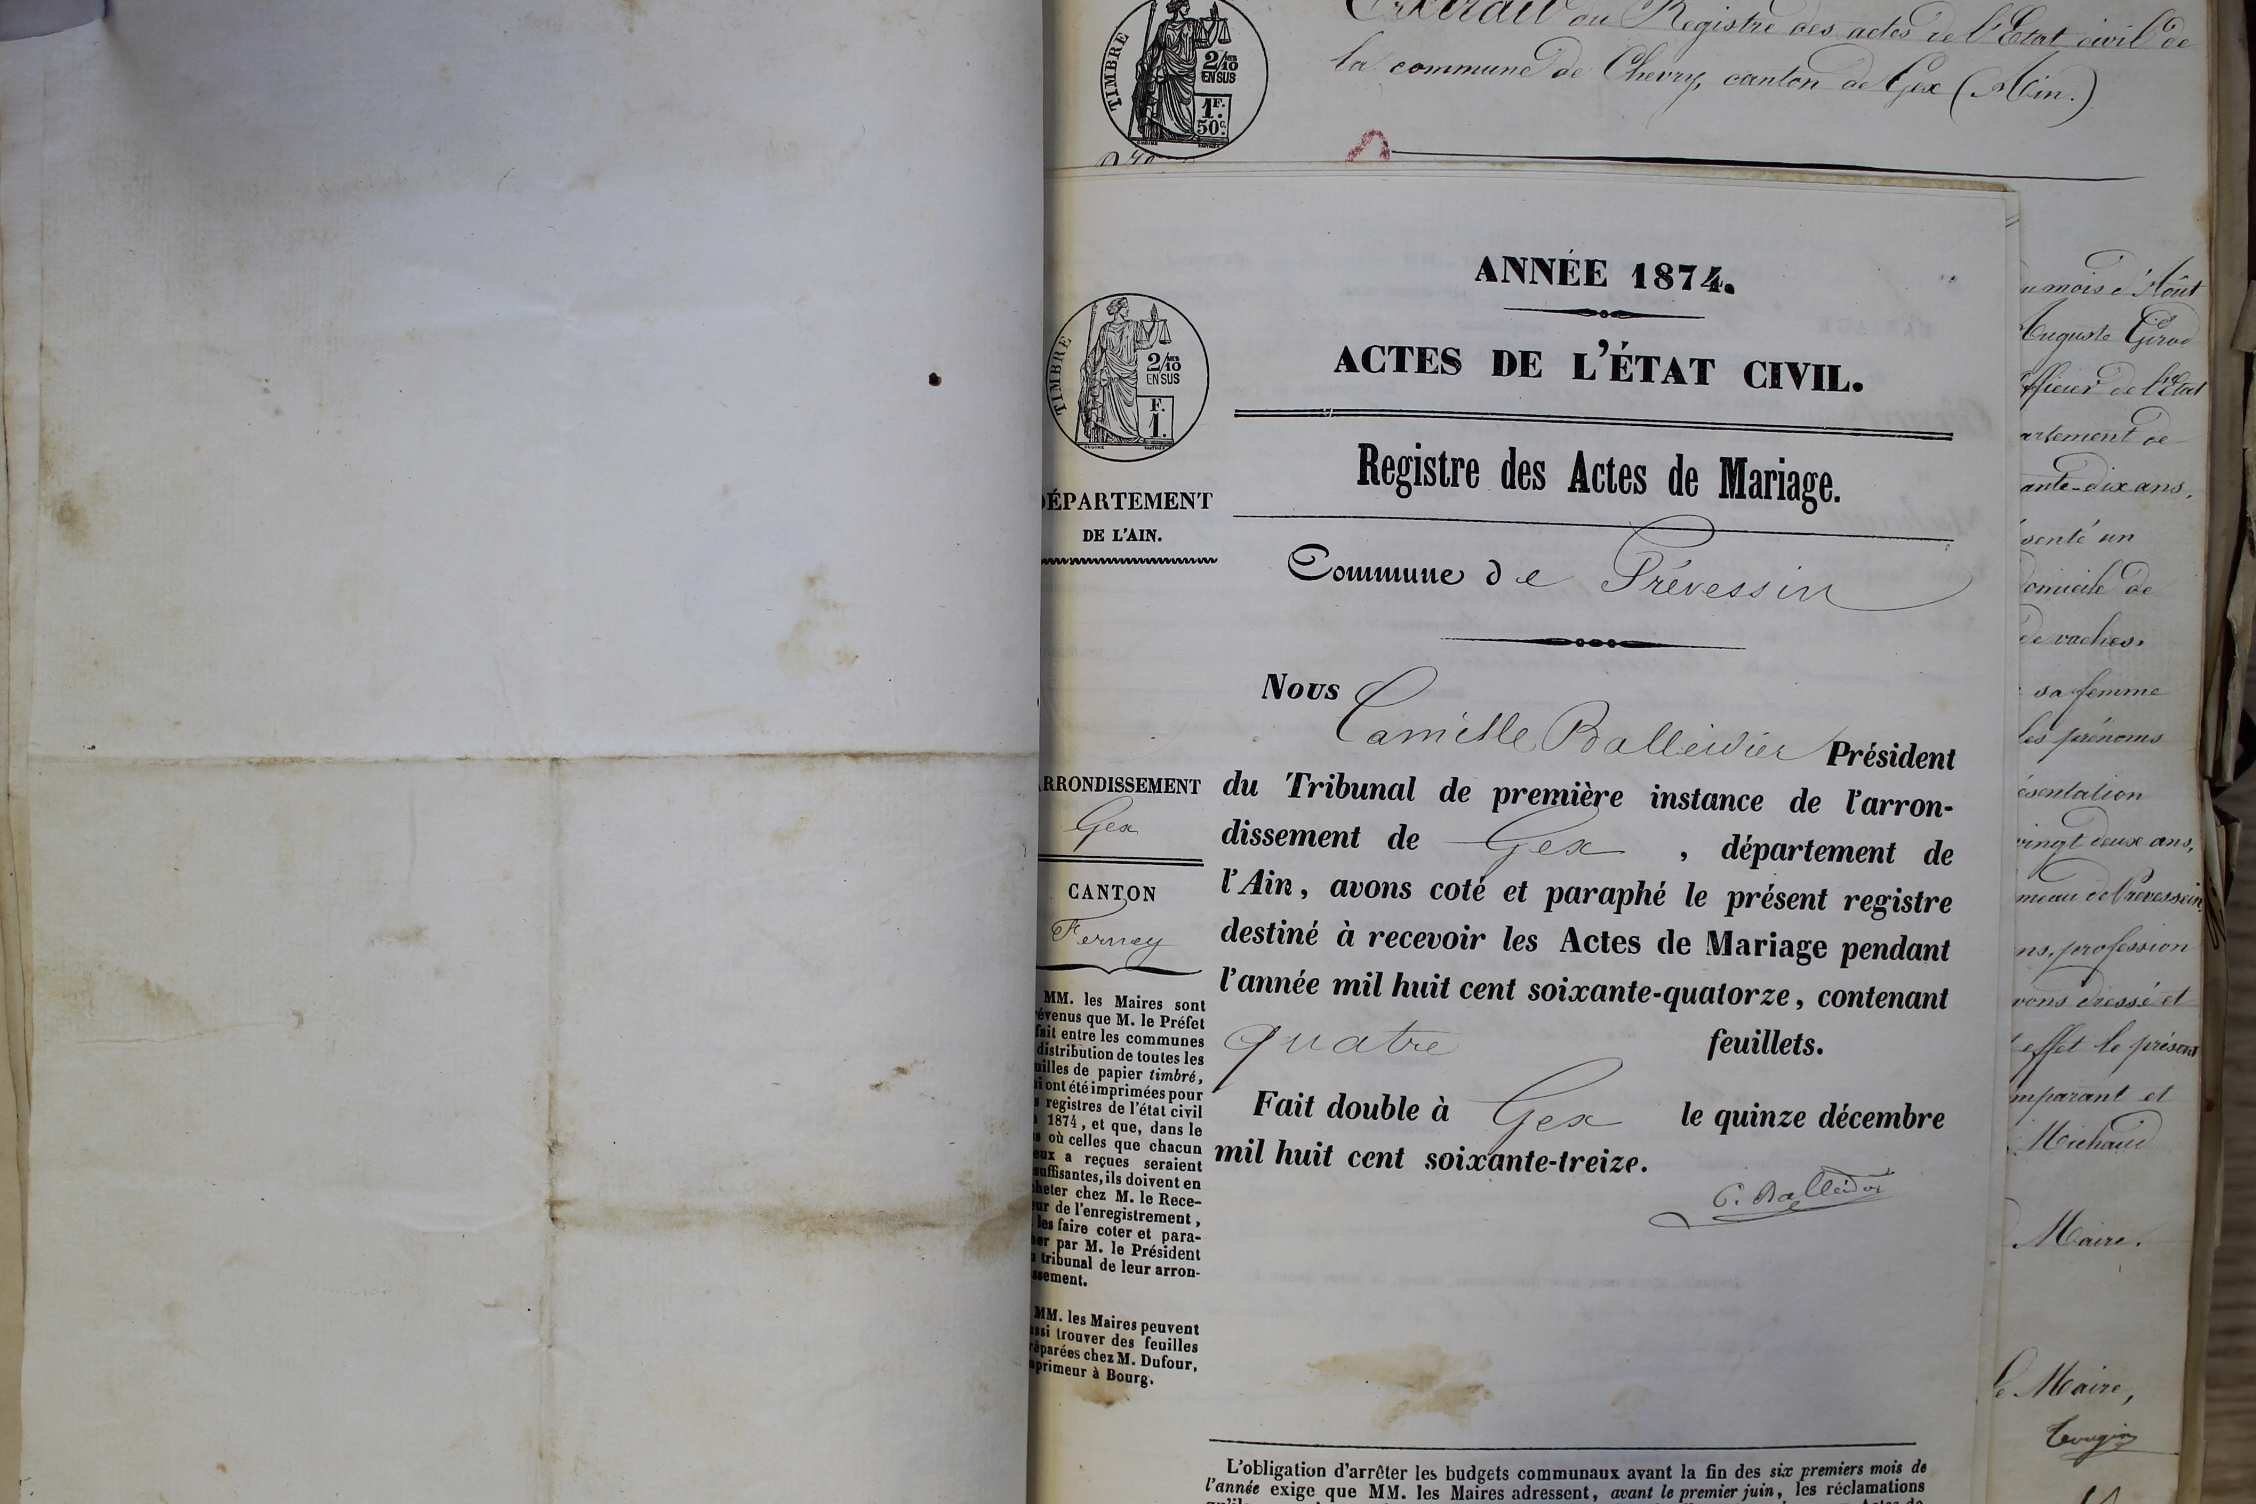 Extrait du Registre des actes de l'Etat civil de
la commune de Chevry, canton de Gex (Ain.)
TIMBRE
2/10 EN SUS
1F. 50c.
ANNÉE 1874.
ACTES DE L'ÉTAT CIVIL.
Registre des Actes de Mariage.
Commune de Prévessin
TIMBRE
2/10 EN SUS
F. 1.
DÉPARTEMENT
DE L'AIN.
RRONDISSEMENT
Gex
CANTON
Ferney
MM. les Maires sont
évenus que M. le Préfet
fait entre les communes
distribution de toutes les
uilles de papier timbré,
i ont été imprimées pour
s registres de l'état civil
1874, et que, dans le
s où celles que chacun
eux a reçues seraient
suffisantes, ils doivent en
heter chez M. le Rece-
eur de l'enregistrement,
les faire coter et para-
her par M. le Président
u tribunal de leur arron-
ssement.
MM. les Maires peuvent
ussi trouver des feuilles
réparées chez M. Dufour,
mprimeur à Bourg.
Nous Camille Balleidier Président
du Tribunal de première instance de l'arron-
dissement de Gex, département de
l'Ain, avons coté et paraphé le présent registre
destiné à recevoir les Actes de Mariage pendant
l'année mil huit cent soixante-quatorze, contenant
quatre feuillets.
Fait double à Gex le quinze décembre
mil huit cent soixante-treize.
C. Balleidier
L'obligation d'arrêter les budgets communaux avant la fin des six premiers mois de
l'année exige que MM. les Maires adressent, avant le premier juin, les réclamations
u mois d'Août
Auguste Girod
fficier de l'Etat
artement de
ante-dix ans,
senté un
omicile de
de vaches,
sa femme
les prénoms
ésentation
vingt deux ans,
meau de Prévessin
ns, profession
vons dressé et
effet le présent
mparant et
Michaud
Maire.
le Maire,
Tougin